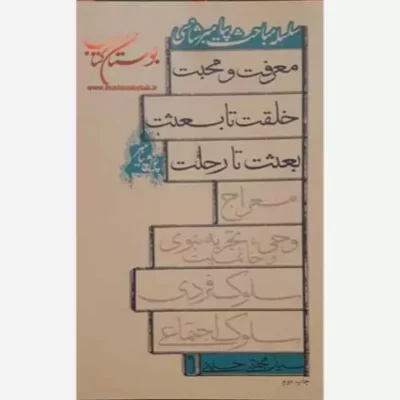 سلسله مباحث پیامبرشناسی
بوستان کتاب
معرفت و محبت
www.bustaneketab.ir
خلقت تا بعثت
بعثت تا رحلت
معراج
وحی، تجربه نبوی
و خاتمیت
سلوک فردی
سلوک اجتماعی
سید مجتبی حسینی
چاپ دوم